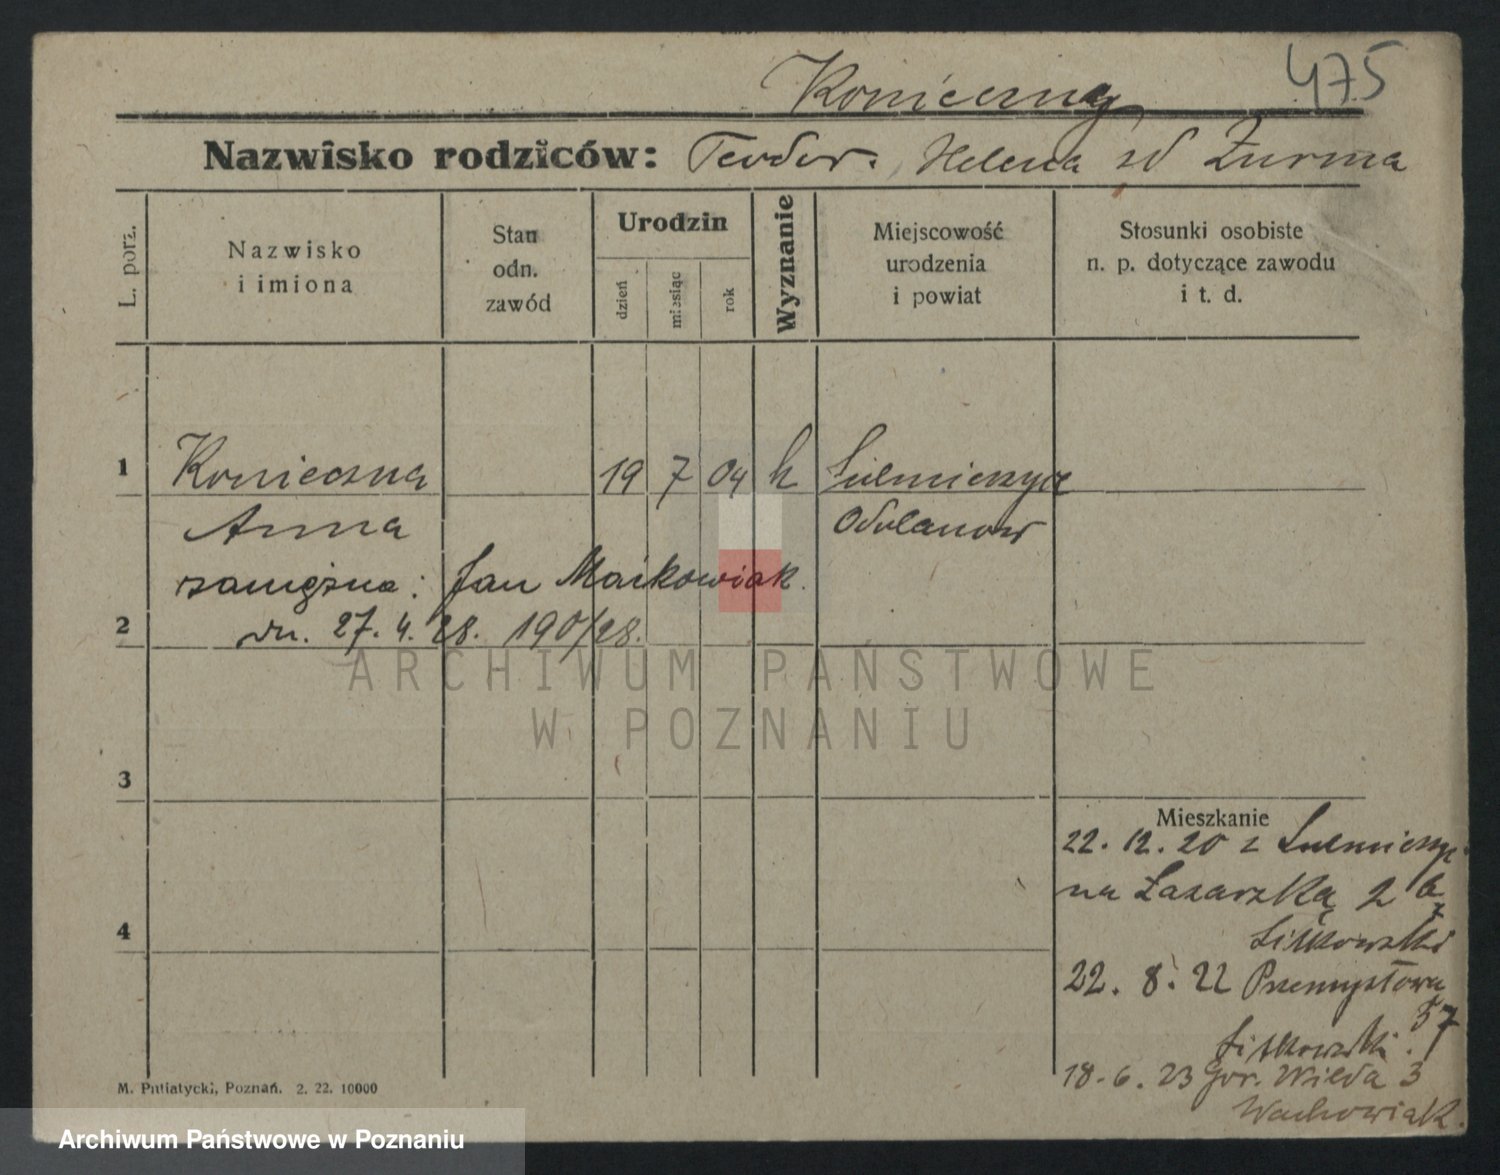 475
Konieczny
Nazwisko rodziców: Teodor. Helena zd Żurma
L. porz.
Nazwisko
i imiona
Stan
odn.
zawód
Urodzin
dzień
miesiąc
rok
Wyznanie
Miejscowość
urodzenia
i powiat
Stosunki osobiste
n. p. dotyczące zawodu
i t. d.
1 Konieczna 19 7 04 k Sulmierzyce
Anna Odolanow
zamężna: Jan Maćkowiak.
2 dn. 27. 4. 28. 190/28.
ARCHIWUM PAŃSTWOWE
W POZNANIU
3
Mieszkanie
22. 12. 20 z Sulmierzyc
na Łazarską 2
4
22. 8. 22 Przemysłowa
57
18. 6. 23 Gor. Wilda 3
Wachowiak.
M. Putiatycki, Poznań. 2. 22. 10000
Archiwum Państwowe w Poznaniu